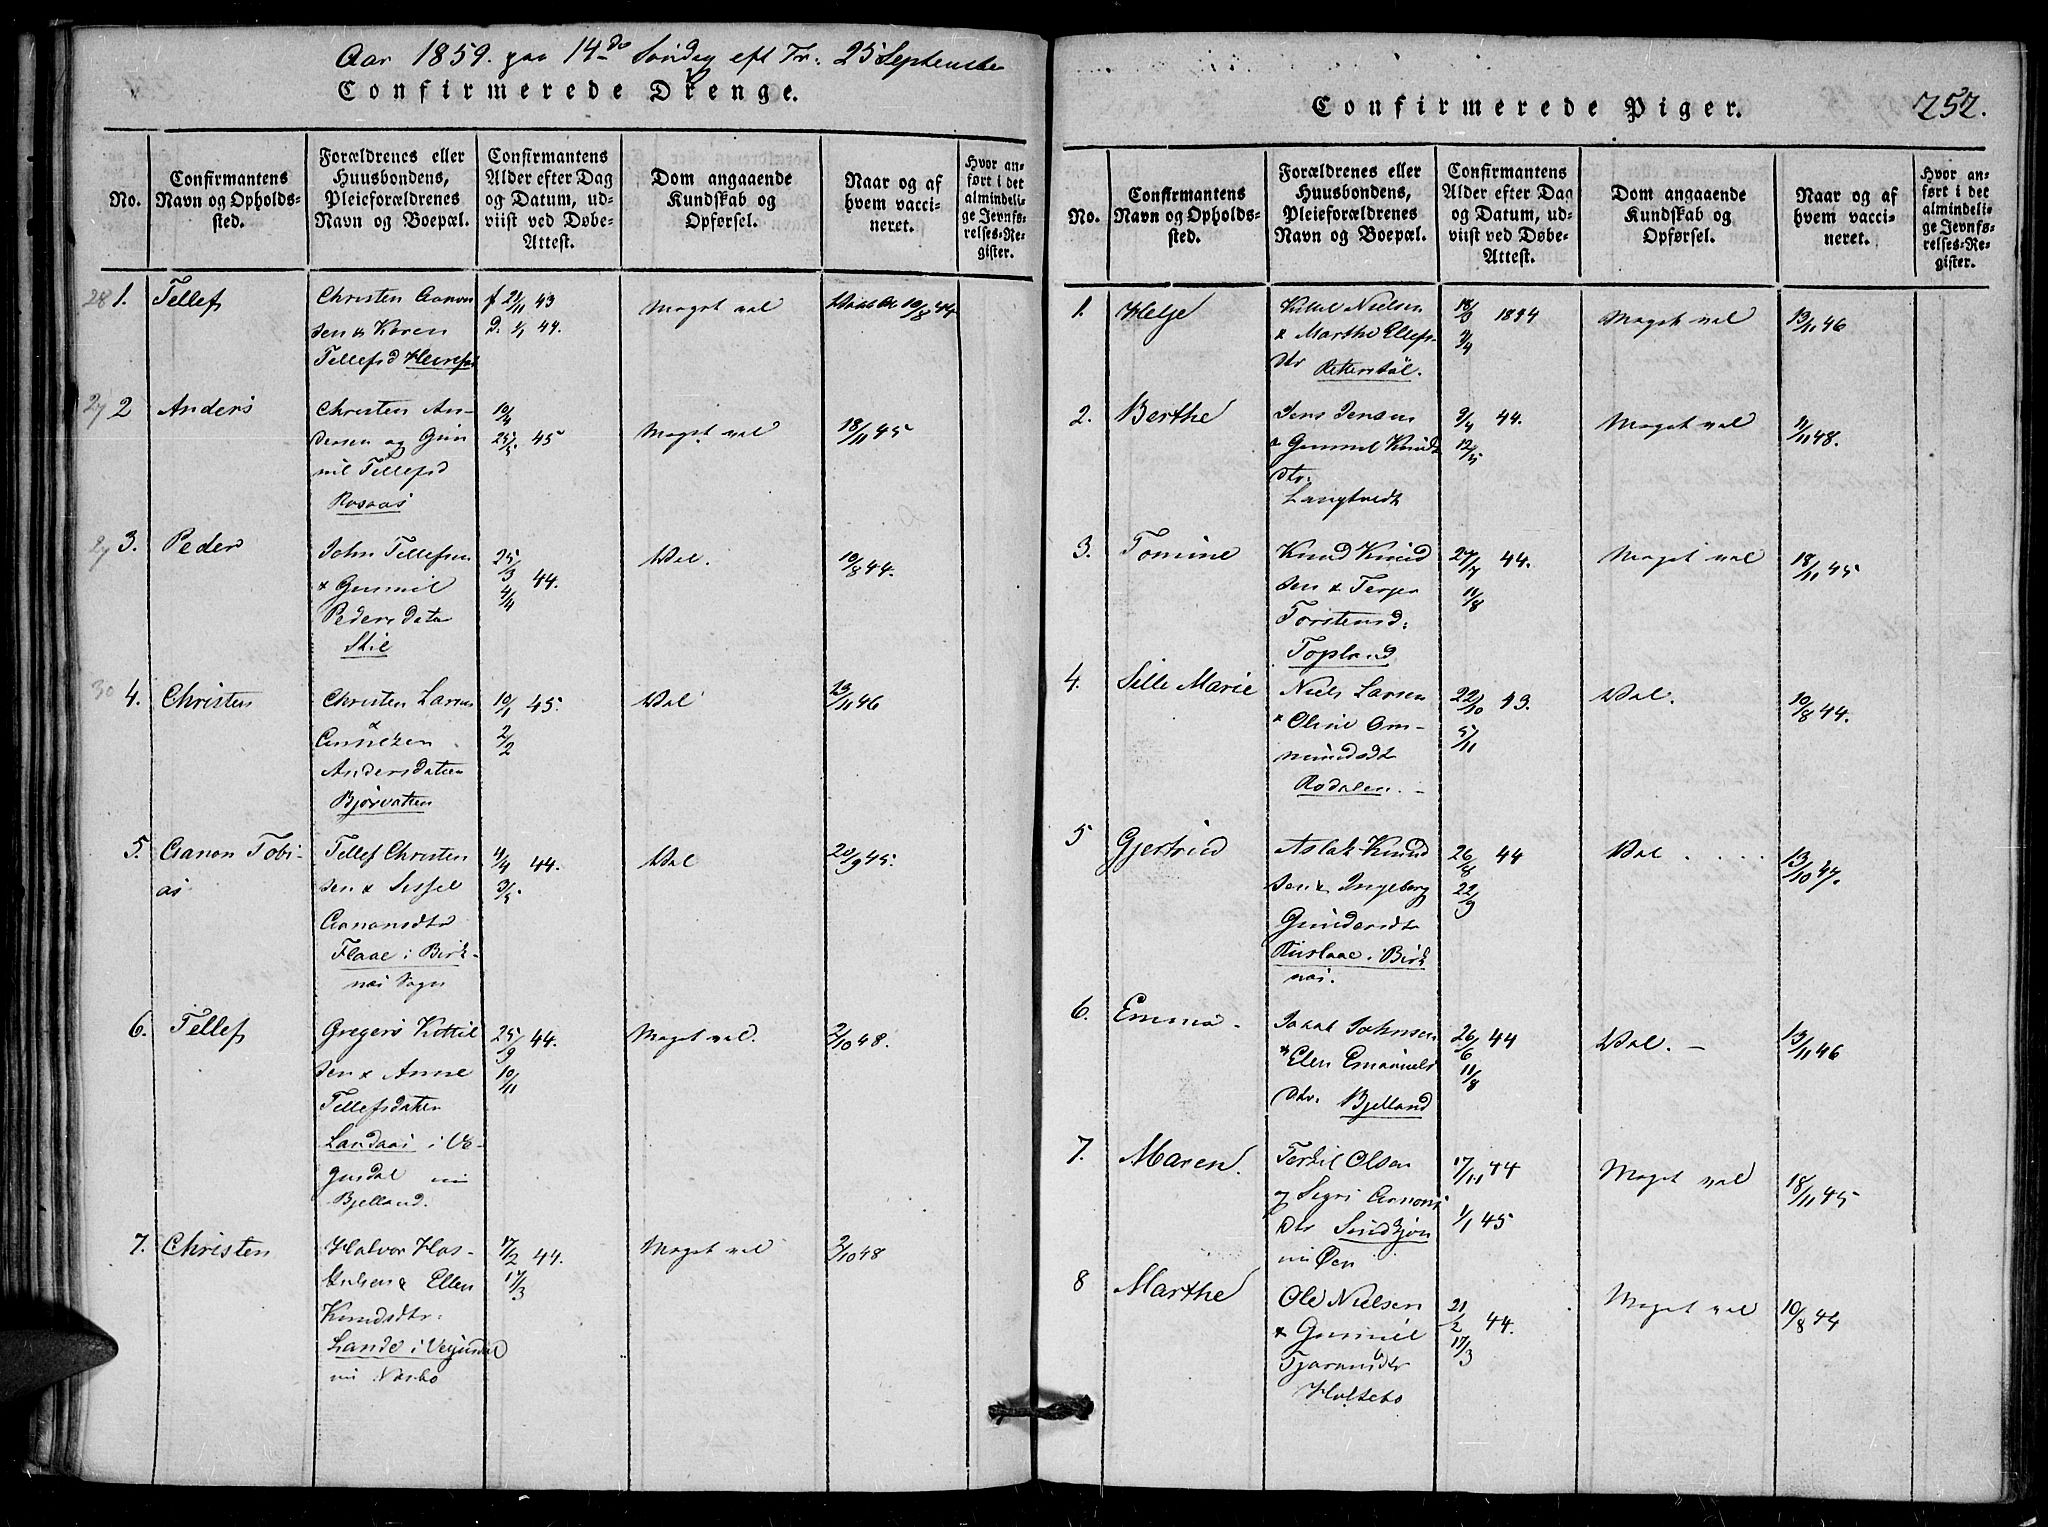 Aar 1859. paa 14de Søndag eft Tr: 25 September
Confirmerede Drenge.
No.
Confirmantens Navn og Opholdssted.
Forældrenes eller Huusbondens, Pleieforældrenes Navn og Boepæl.
Confirmantens Alder efter Dag og Datum, udviist ved Døbe-Attest.
Dom angaaende Kundskab og Opførsel.
Naar og af hvem vaccineret.
Hvor anført i det almindelige Jevnførelses-Register.
28 1. Tellef
Christen Aanon
sen & Karen
Tellefsd
f 21/11 43
D. 1/1 44.
Meget vel
10/8 44
2 Anders
Christen An-
dersen og Gun
nil Tellefsd
Rosaas
10/4
25/5 45
Meget vel
18/11 45
3. Peder
John Tellefsen
& Gunnil
Pedersdater
Skil
25/3 44.
4/4
Vel.
10/8 44.
30 4. Christen
Christen Larsen
&
Annezen
Andersdatter
Bjørvatten
10/1 45.
2/2
Vel
13/11 46
5. Aanon Tobi-
as
Tellef Christen
sen & Sissel
Aanonsdtr
Flaae i Birk-
næs Sogn
4/4 44.
3/5
Vel
20/9 45.
6. Tellef
Gregers Kittil
sen & Anne
Tellefsdatter
Landaas i Ve-
gusdal nu
Bjelland.
25/9 44.
10/11
Meget vel.
2/10 48.
7. Christen
Halvor Has-
& Ellen
Knudsdtr.
Lande i Vegusdal
nu Næsbø
17/2 44.
17/3
Meget vel
2/10 48
Confirmerede Piger.
252.
No.
Confirmantens Navn og Opholdssted.
Forældrenes eller Huusbondens, Pleieforældrenes Navn og Boepæl.
Confirmantens Alder efter Dag og Datum, udviist ved Døbe-Attest.
Dom angaaende Kundskab og Opførsel.
Naar og af hvem vaccineret.
Hvor anført i det almindelige Jevnførelses-Register.
1. Helje
Kittel Nielsen
& Marthe Ellefs
dtr
18/3 1844
Meget vel
13/11 46
2. Berthe
Jens Jensen
& Gunnel Knuds
dtr.
Langtvedt
9/4 44.
12/5
Meget vel
11/11 48.
3. Tomine
Knud Knud
sen & Terjer
Torstensd:
Topland
27/7 44.
11/8
Meget vel
18/11 45
4. Sille Marie
Niels Larsen
& Oline Om-
mundsdtr
Rødalen. -
22/10 43.
5/11
Vel.
10/8 44.
5 Gjertrud
Aslak Knud
sen & Ingeborg
Gundersdtr
i Birk
næs.
26/8 44
22/9
Vel
13/10 47.
6. Emma
Jacob Johnsen
& Elen Emanuels
dtr. Bjelland
26/6 44
11/8
Vel. -
13/11 46
7. Maren.
Terkil Olsen
og Segri Aanons
dtr
nu Øen
17/11 44
1/1 45
Meget vel
18/11 45
8 Marthe
Ole Nielsen
& Gunnil
Holtebo
21/2 44.
17/3
Meget vel
10/8 44